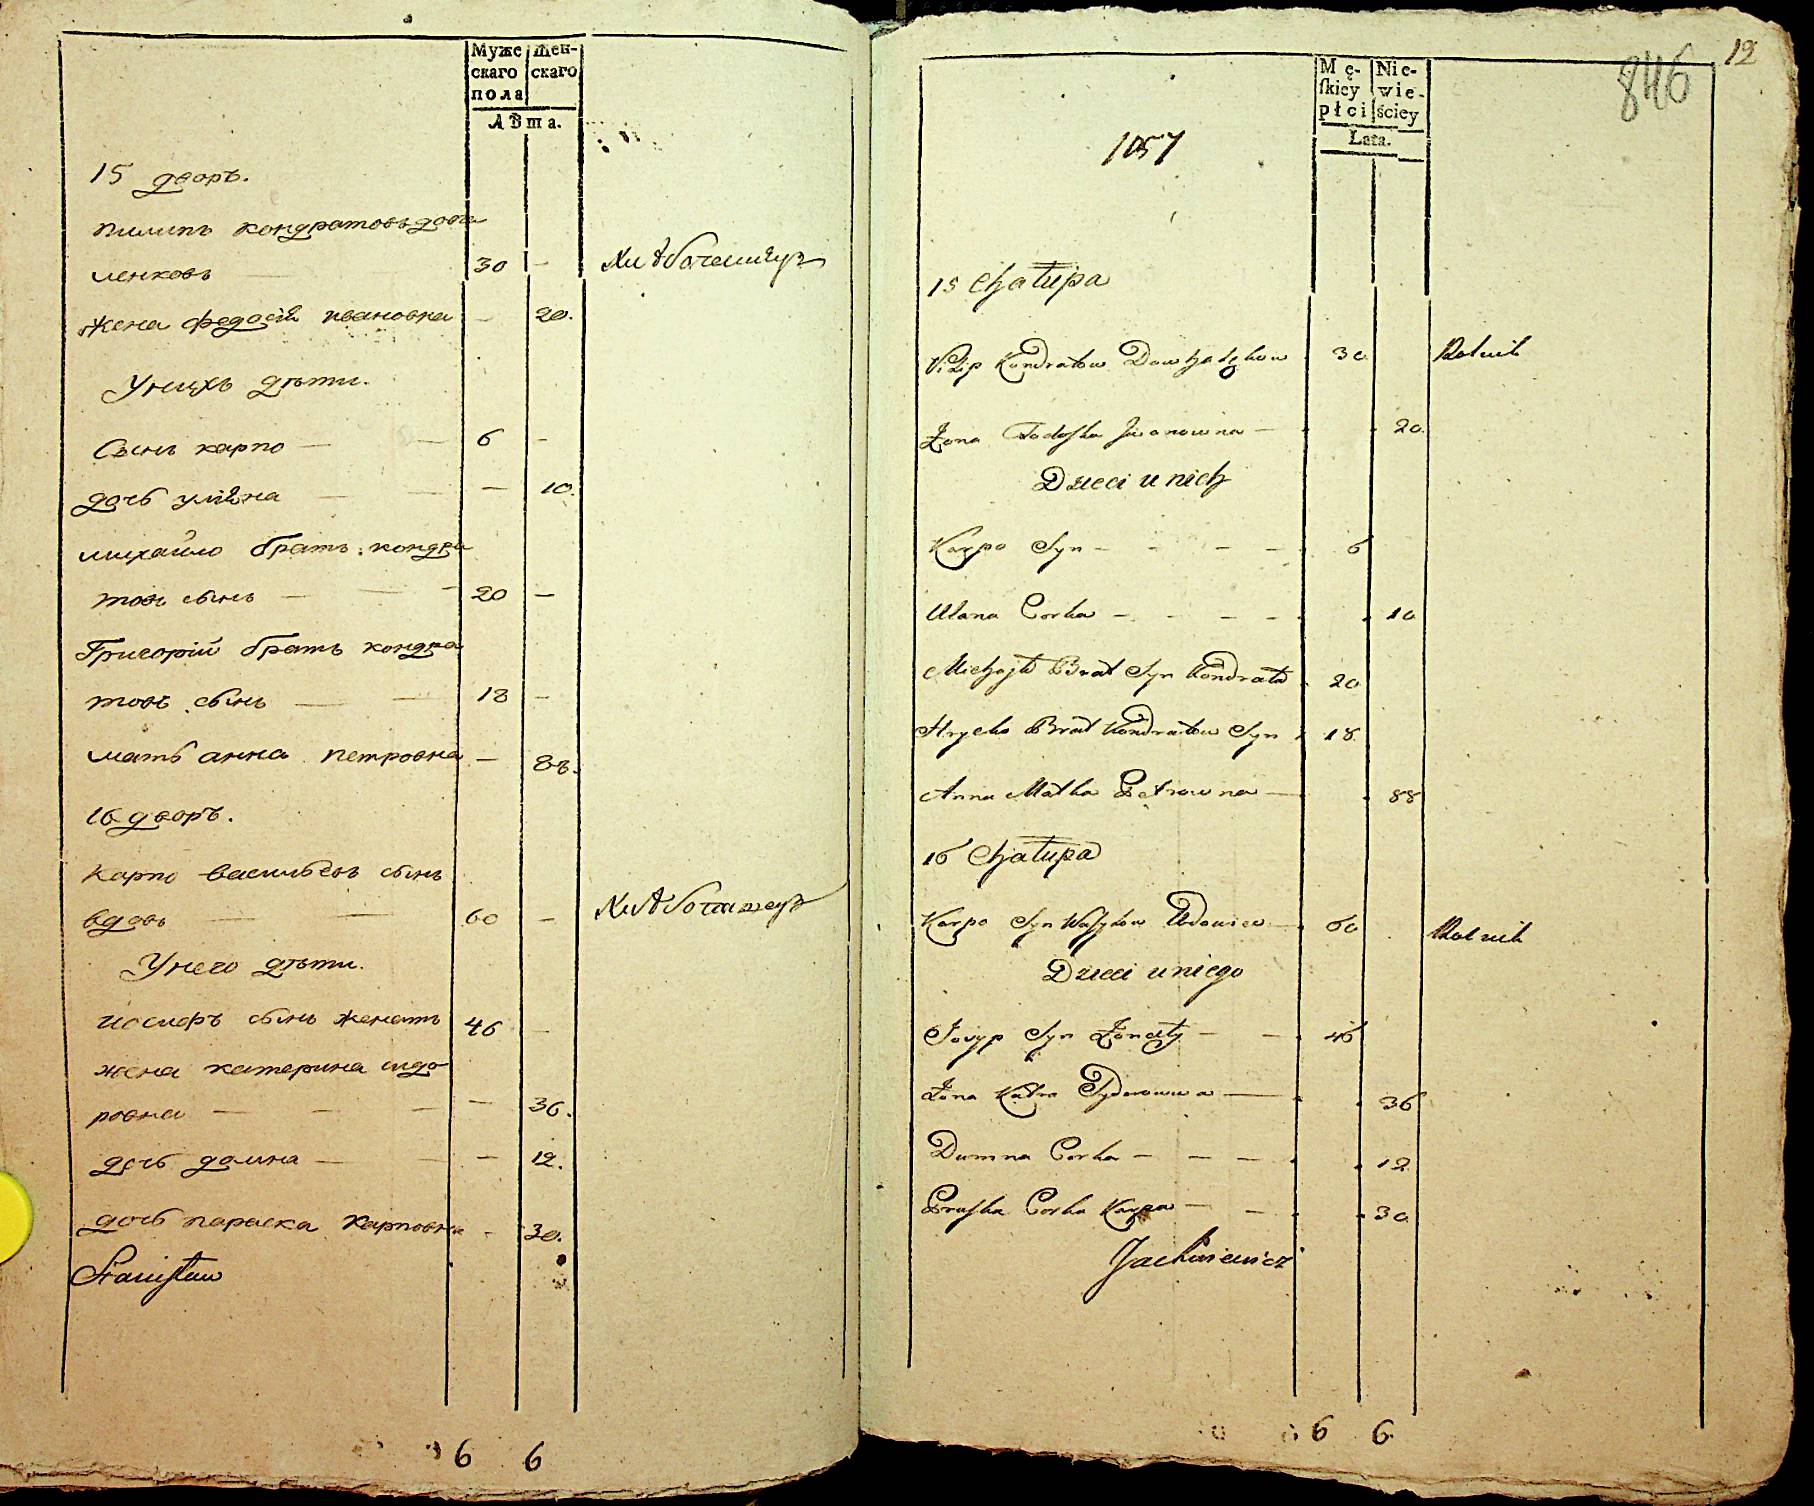 Муже Жен-
скаго скаго
пола
Лѣта.
15 дворъ.
пилипъ кондратовъ довга
ленковъ 30 —
жена федосія ивановна — 20.
Унихъ дѣти.
Сынъ карпо — 6 —
дочь уліяна — — 10.
михайло братъ кондра
товъ сынъ — 20 —
Григорій братъ кондра
товъ сынъ — 18 —
мать анна петровна — 88.
16 дворъ.
карпо васильевъ сынъ
вдовъ — 60 —
Унего дѣти.
иосифъ сынъ женатъ 46 —
жена катерина сидо
ровна — — 36.
дочь домна — — 12.
дочь параска карповна - 30.
Stanisław
6 6
12
846
Mę- Nie-
skiey wie-
płci ściey
Lata.
1057
15 Chałupa
Filip Kondratow 30 Rolnik
Żona Fodoska Iwanowna — 20.
Dzieci u nich
Karpo Syn — 6
Ulana Corka — 10
Michayło Brat Syn Kondrata 20
Hrycko Brat Kondratow Syn 18
Anna Matka Petrowna — 88
16 Chałupa
Karpo Syn Wasylow Wdowiec — 60 Rolnik
Dzieci u niego
Iozyp Syn Żonaty — 46
Żona Katra Sydorowna — 36
Dumna Corka — 12
Praska Corka Karpa — 30
Jackiewicz
6 6